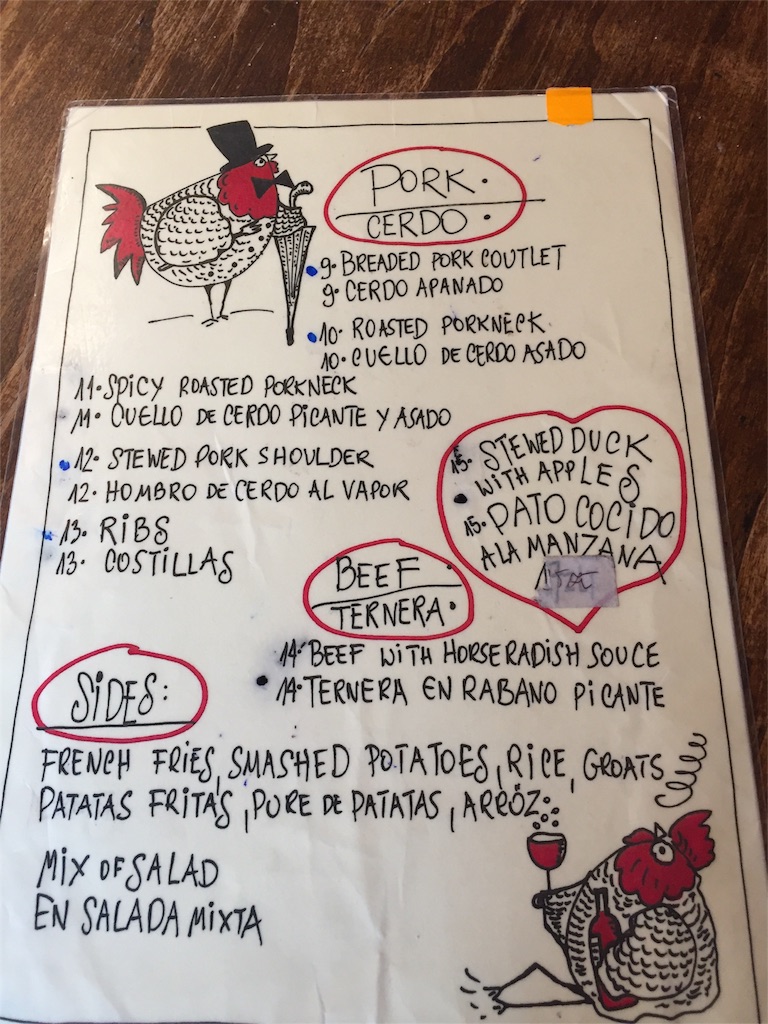 PORK.
CERDO.
9. BREADED PORK COUTLET
9. CERDO APANADO
10. ROASTED PORKNECK
10. CUELLO DE CERDO ASADO
11. SPICY ROASTED PORKNECK
11. CUELLO DE CERDO PICANTE Y ASADO
12. STEWED PORK SHOULDER
12. HOMBRO DE CERDO AL VAPOR
13. RIBS
13. COSTILLAS
15. STEWED DUCK
WITH APPLES
15. PATO COCIDO
A LA MANZANA
BEEF.
TERNERA.
14. BEEF WITH HORSERADISH SOUCE
14. TERNERA EN RABANO PICANTE
SIDES:
FRENCH FRIES, SMASHED POTATOES, RICE, GROATS
PATATAS FRITAS, PURE DE PATATAS, ARROZ.
MIX OF SALAD
EN SALADA MIXTA